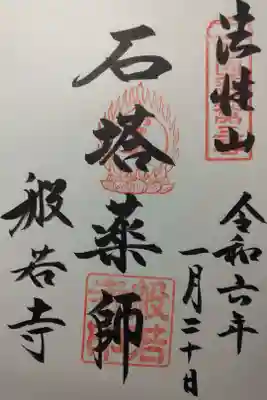 法性山
令和六年
一月二十日
石塔薬師
般若寺